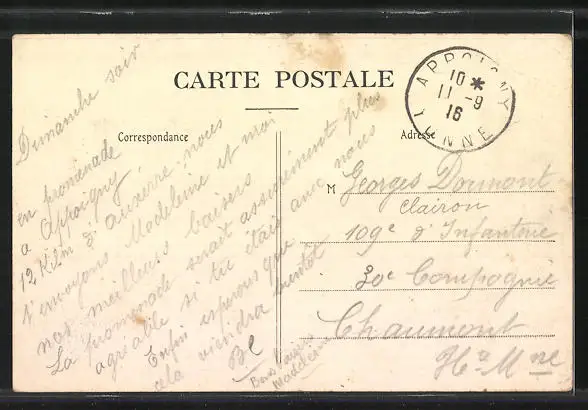 CARTE POSTALE
Correspondance
Adresse
APPOIGNY
10 *
11 - 9
16
YONNE
Dimanche soir
en promenade
a Appoigny
12 Kilm d'auxerre. nous
t'envoyons Madeleine et moi
nos meilleurs baisers
La promenade serait assurément plus
agréable si tu étais avec nous
Enfin esperons que
cela viendra bientôt
Bons baisers
Madeleine
M Georges Dromont
Clairon
109e d'Infanterie
30e Compagnie
Chaumont
Hte Mne